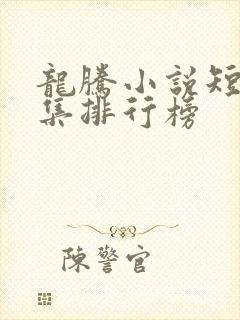 龍騰小說短
集排行榜
陳警官